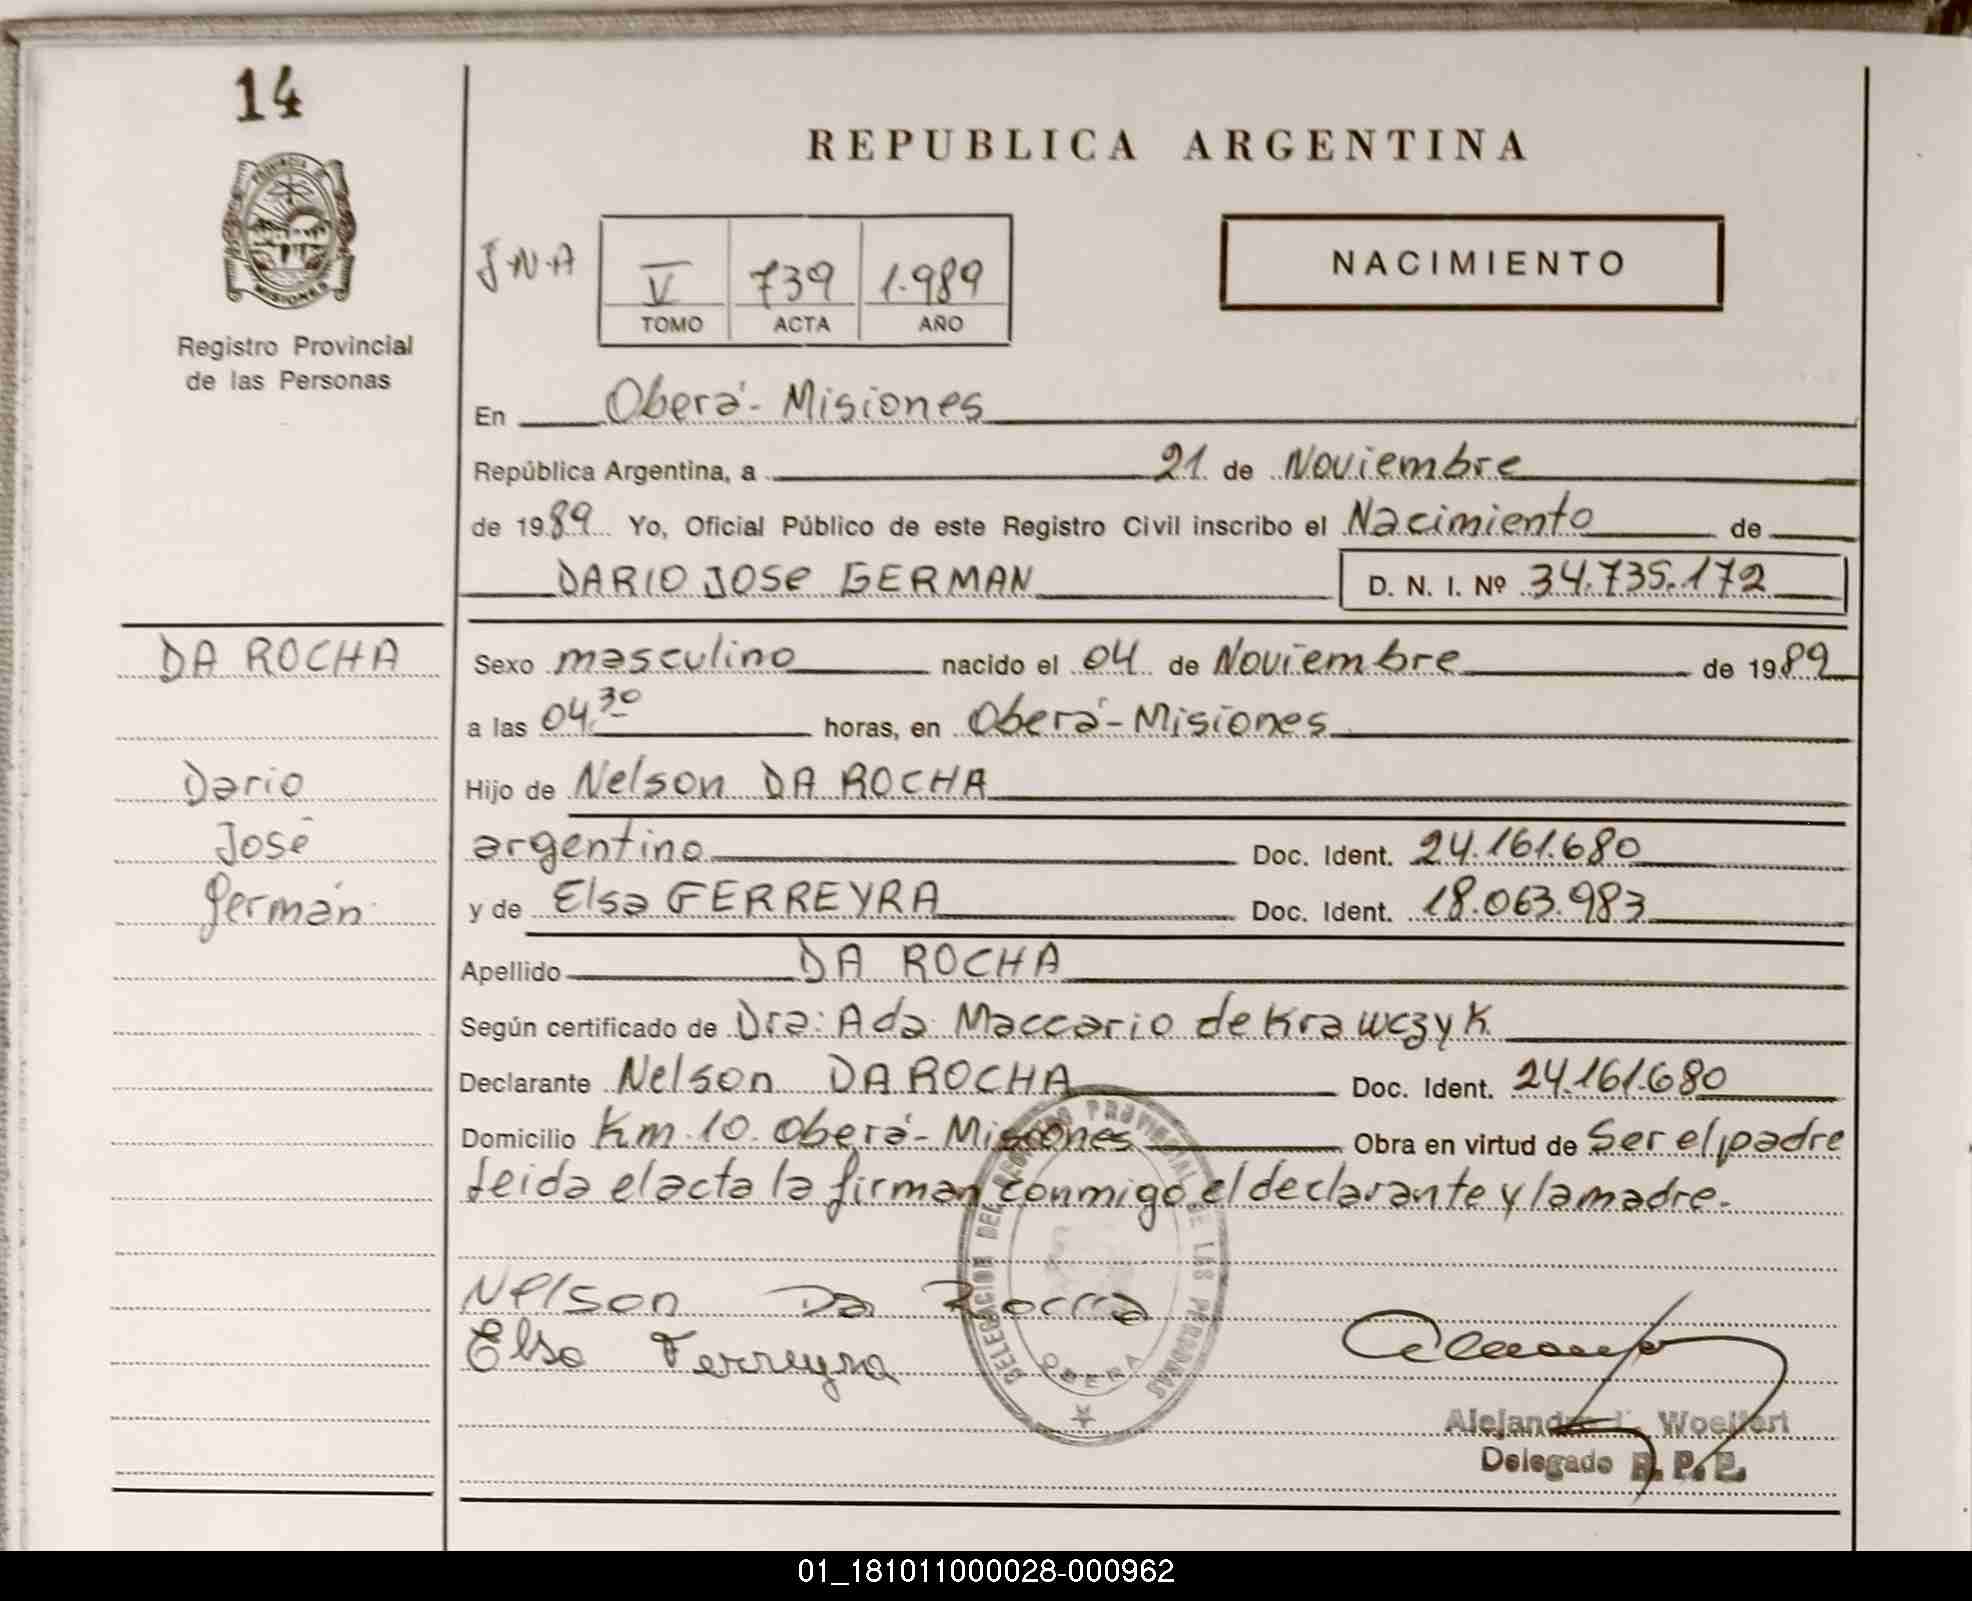 14
PROVINCIA DE
MISIONES
Registro Provincial
de las Personas
DA ROCHA
Dario
José
Germán
REPUBLICA ARGENTINA
J.N.A
V 739 1.989
TOMO ACTA AÑO
NACIMIENTO
En Oberá - Misiones
República Argentina, a 21 de Noviembre
de 1989 Yo, Oficial Público de este Registro Civil inscribo el Nacimiento de
DARIO JOSE GERMAN D. N. I. Nº 34.735.172
Sexo masculino nacido el 04 de Noviembre de 1989
a las 04.30 horas, en Oberá - Misiones
Hijo de Nelson DA ROCHA
argentino Doc. Ident. 24.161.680
y de Elsa FERREYRA Doc. Ident. 18.063.983
Apellido DA ROCHA
Según certificado de Dra: Ada Maccario de Krawczyk
Declarante Nelson DA ROCHA Doc. Ident. 24.161.680
Domicilio Km. 10. Oberá - Misiones Obra en virtud de Ser el padre
leida el acta la firman conmigo el declarante y la madre.
Nelson Da Roccia
Elsa Ferreyra
DELEGACION DEL REGISTRO PROVINCIAL DE LAS PERSONAS
OBERA
Woelfert
Delegado R. P. P.
01_181011000028-000962